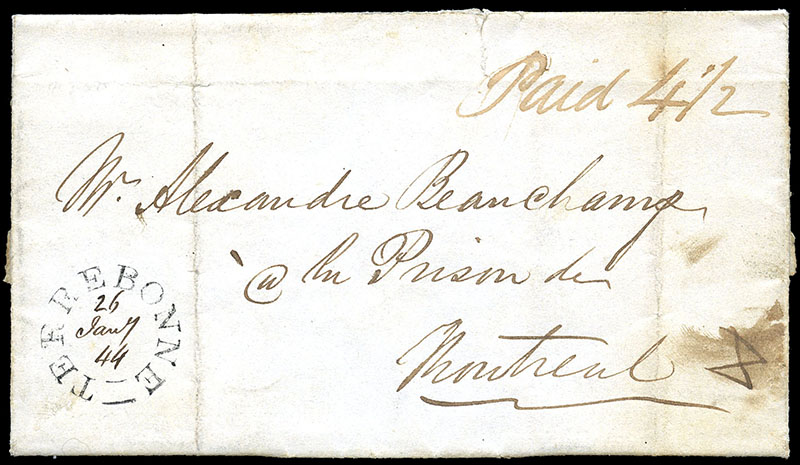 Paid 4 1/2
Mr. Alexandre Beauchamp
à la Prison de
Montreal
TERREBONNE
26
Jany
44